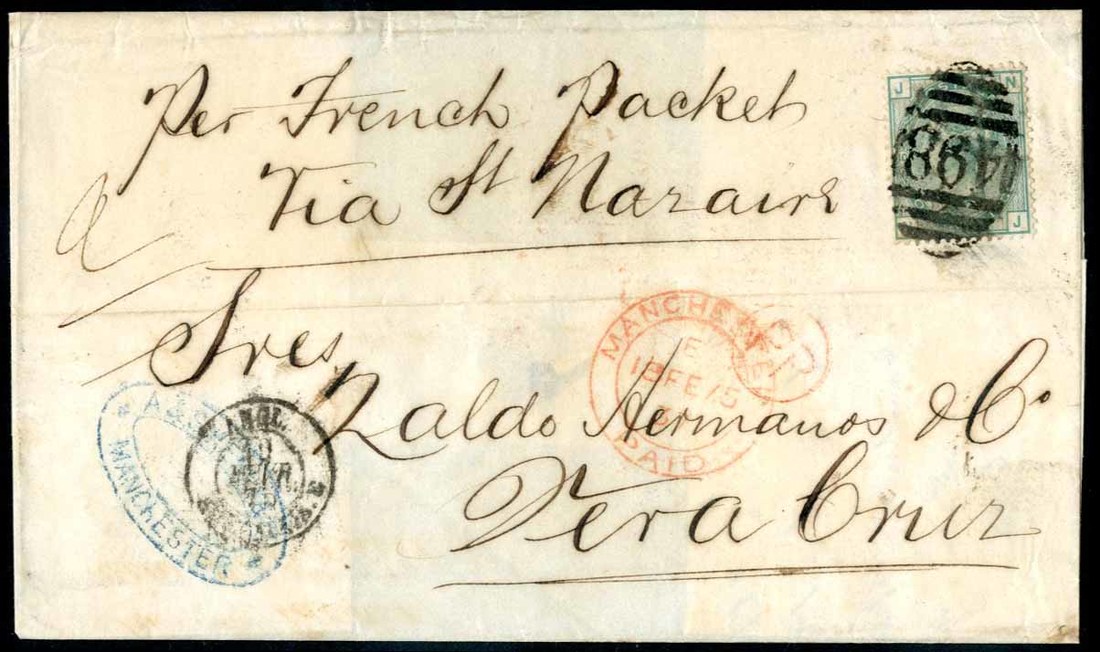 Per French Packet
Via St Nazaire
Sres Zaldo Hermanos & Co
Vera Cruz
J N
J
498
MANCHESTER
18 FE 75
PAID
ANGL.
MANCHESTER